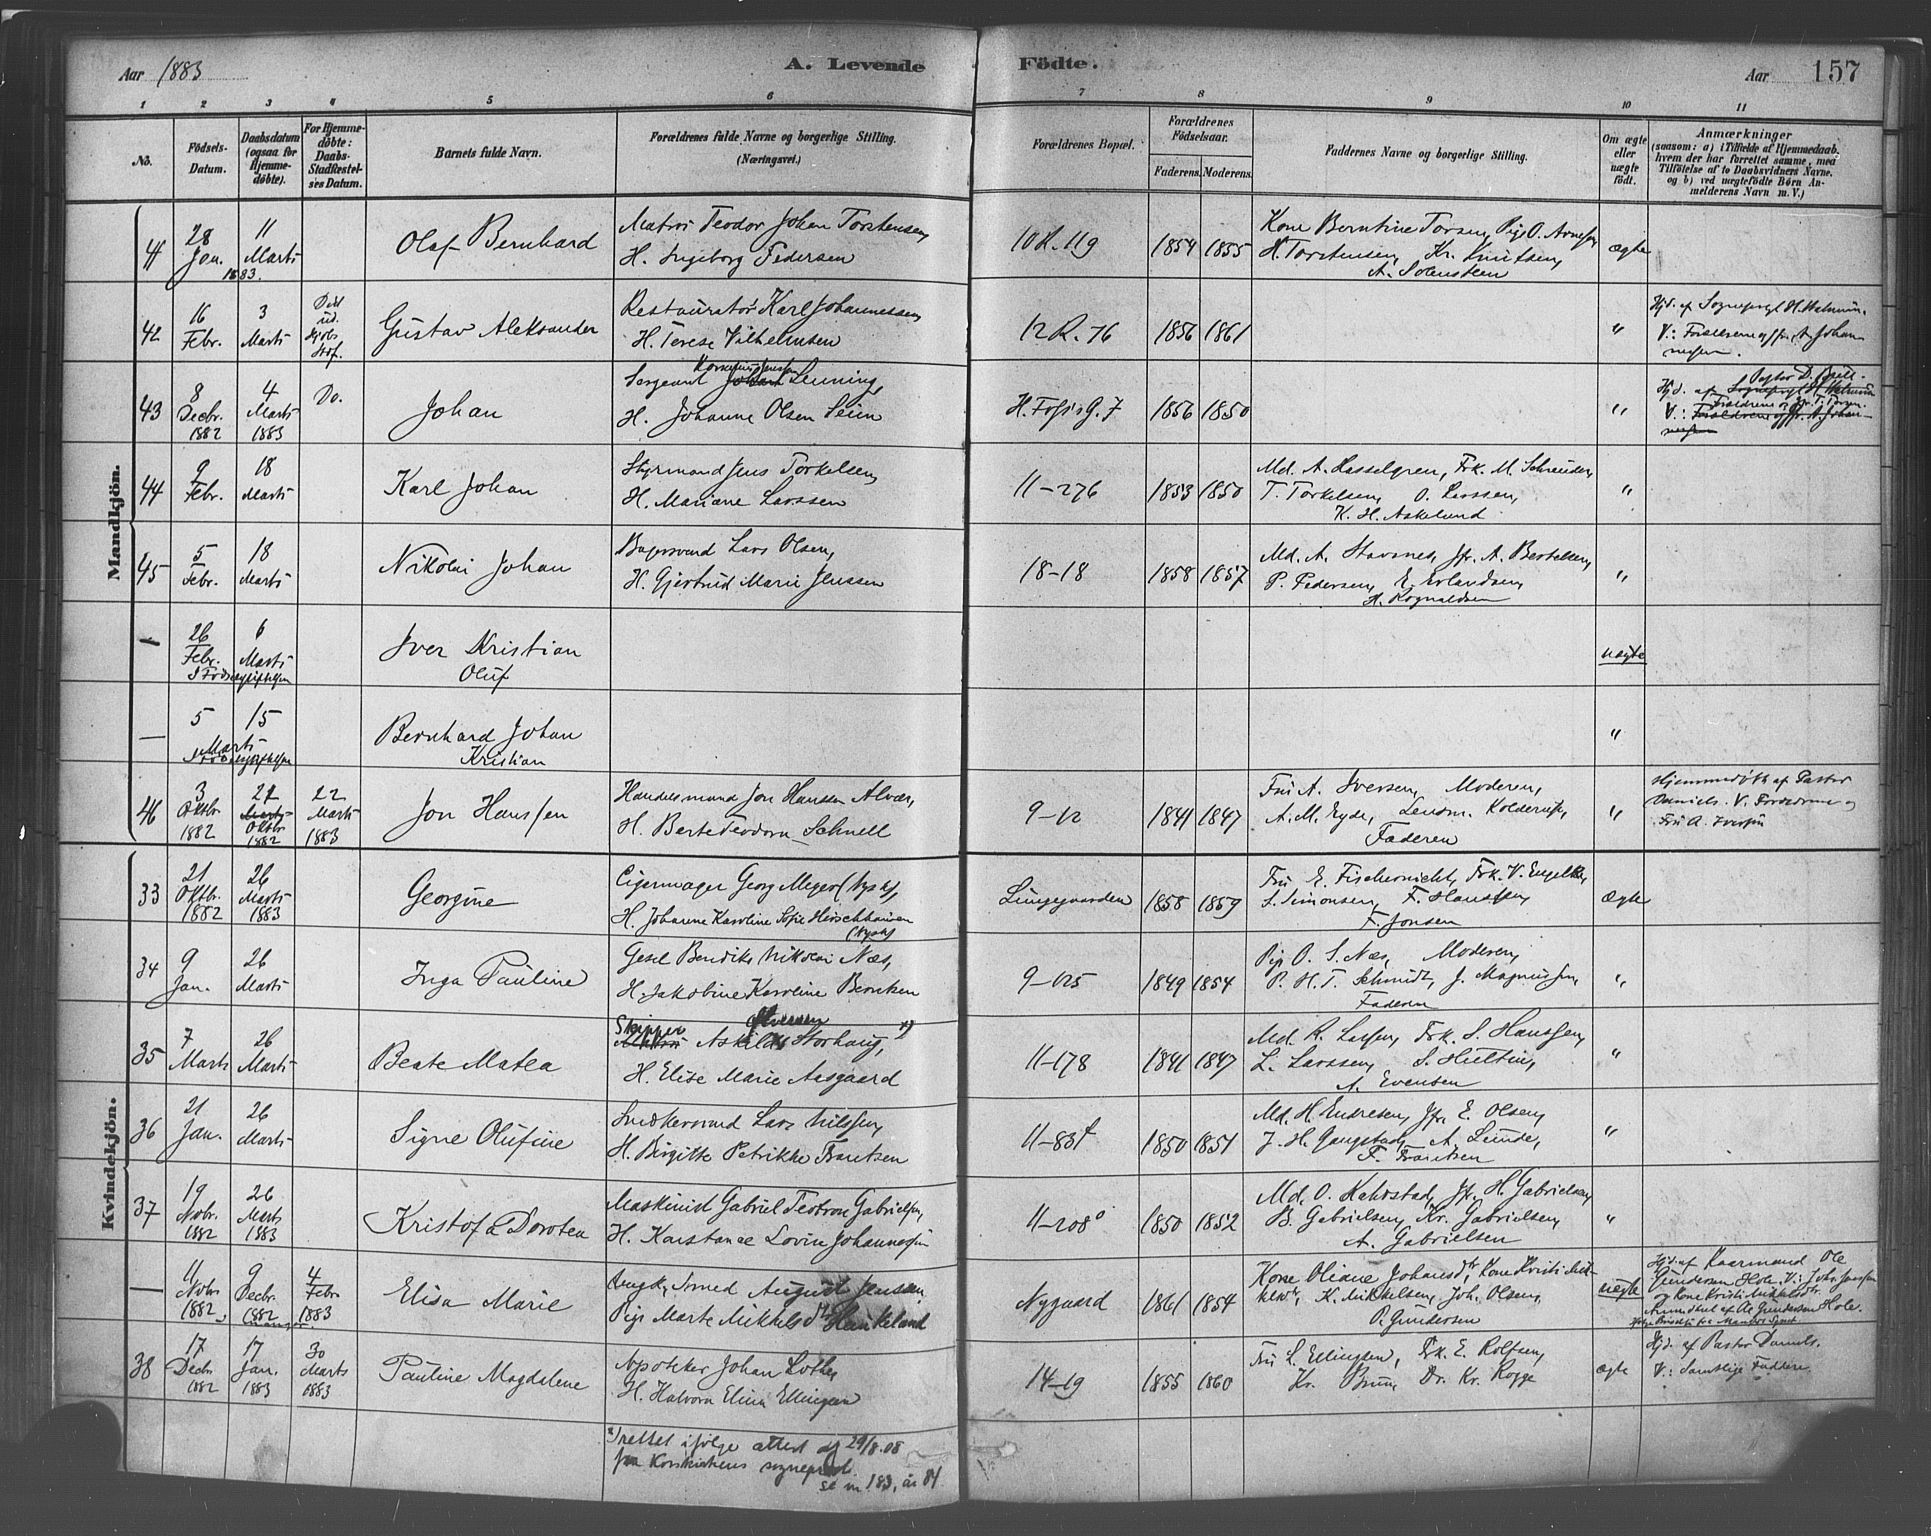 Aar 1883
A. Levende Födte.
Aar 157
1 2 3 4 5 6 7 8 9 10 11
No.
Födsels-Datum.
Daabsdatum (ogsaa for Hjemme-döbte).
For Hjemme-döbte: Daabs-Stadfæstel-ses Datum.
Barnets fulde Navn.
Forældrenes fulde Navne og borgerlige Stilling.
(Næringsvei.)
Forældrenes Bopæl.
Forældrenes Födselsaar.
Faderens. Moderens.
Faddernes Navne og borgerlige Stilling.
Om ægte eller uægte födt.
Anmærkninger
(saasom: a) i Tilfælde af Hjemmedaab,
hvem der har forrettet samme, med
Tilföielse af to Daabsvidners Navne.
og b) ved uægtefödte Börn An-
melderens Navn m. V.)
Mandkjön.
41 28 Jan. 1883. 11 Marts
Olaf Bernhard
Matros Teodor Johan Torstensen,
H. Ingeborg Pedersen
10 R. 119 1854 1855
Kone Berntine Torsen, Pige O. Arnesen
H. Torstensen, Kr. Knutsen,
A. Solensteen
ægte
42 16 Febr. 3 Marts
Gustav Aleksander
Restauratør Karl Johannessen,
H. Terese Vilhelmsen
12 R. 76 1856 1861 "
Hjd. af Sognepr.
V.: Forældrene og A. Johan-
nessen.
43 8 Decbr. 1882 4 Marts 1883 Do.
Johan
Sergeant Johan Lenning,
H. Johanne Olsen Leim
H. Foss's G. 7 1856 1850 "
Hjd. af Pastor D.
V.: Forældrene og
44 9 Febr. 18 Marts
Karl Johan
Styrmand Jens Torkelsen,
H. Mariane Larssen
11-276 1853 1850
Md. A. Hasselgren, Frk. M. Schreuder,
T. Torkelsen, O. Larssen,
K. H. Askelund
"
45 5 Febr. 18 Marts
Nikolai Johan
Bagersvend Lars Olsen,
H. Gjertrud Marie Jenssen
18-18 1858 1857
Md. A. Stavnes, Jfr. A. Bertelsen,
P. Pedersen, E. Erlandsen,
H. Rognaldsen
"
— 26 Febr. 6 Marts
Fødselsstiftelsen
Iver Kristian
Oluf
uægte
— 5 15 Marts
Fødselsstiftelsen
Bernhard Johan
Kristian
"
46 3 Oktbr. 1882 22 Marts Oktbr 1882 22 Marts 1883
Jon Hanssen
Handelsmand Jon Hanssen Alvær,
H. Berte Teodora Schnell
9-12 1841 1847
Fru A. Iversen, Moderen,
A. M. Eyde, Lensm. Kolderup,
Faderen
"
Hjemmedøbt af Pastor
Daniels. V. Forældrene og
Fru A. Iversen
Kvindekjön.
33 21 Oktbr. 1882 26 Marts 1883
Georgine
Eigermager Georg Meyer (tysk),
H. Johanne Karoline Sofie Hirschhausen
(tysk)
Lungegaarden 1858 1859
Fru E. Fischernicht, Frk. V. Engelke,
S. Simonsen, F. Hanssen,
F. Jonsen
Ægte
34 9 Jan. 26 Marts
Inga Pauline
Gesel Bendiks Nikolai Næs,
H. Jakobine Karoline Berntsen
9-125 1849 1854
Pige O. S. Næs, Moderen,
P. H. T. Schmidt, J. Magnussen,
Faderen
"
35 7 Marts 26 Marts
Beate Matea
Skipper Askild Storhaug, x)
H. Elise Marie Aasgaard
11-178 1841 1847
Md. R. Larsen, Frk. S. Hanssen,
L. Larssen, S. Hultin,
A. Evensen
"
36 21 Jan. 26 Marts
Signe Olufine
Snedkersvend Lars Nilssen,
H. Birgitte Petrikke Frantsen
11-83 1850 1851
Md. H. Endresen, Jfr. E. Olsen,
J. H. Gangstad, A. Lunde,
F. Frantsen
"
37 19 Novbr. 1882 26 Marts 1883
Kristofa Dorotea
Maskinist Gabriel Teotron Gabrielsen,
H. Konstance Lovise Johannessen
11-208 1850 1852
Md. O. Halvstad, Jfr. H. Gabrielsen,
B. Gabrielsen, Kr. Gabrielsen,
A. Gabrielsen
"
— 11 Novbr. 1882 9 Decbr. 1882 4 Febr. 1883
Elisa Marie
Ungk. Smed August Jensen,
Pige Marte Mikkelsdtr Haukeland
Nygaard 1861 1854
Kone Oliane Johansdtr, Kone Kristi Mik-
kelsdtr, K. Mikkelsen, Joh. Olsen,
P. Gundersen
uægte
Hjd. af Kaarmand Ole
Gundersen Hole. V.: John Jenssen
og Kone Kristi Mikkelsdtr.
Anmeldt af O. Gundersen Hole.
38 17 Decbr. 1882 17 Jan. 1883 30 Marts 1883
Pauline Magdalene
Apoteker Johan Lothe,
H. Halvora Elina Ellingsen
14-19 1855 1860
Fru L. Ellingsen, Frk. E. Rolfsen,
Kr. Bruun, Dr. Kr. Rogge
ægte
Hjd. af Pastor Daniels.
V.: Samtlige Faddere
x) rettet ifølge attest af 29/8.08
fra Korskirkens sogneprest.
se nr 183, år 84